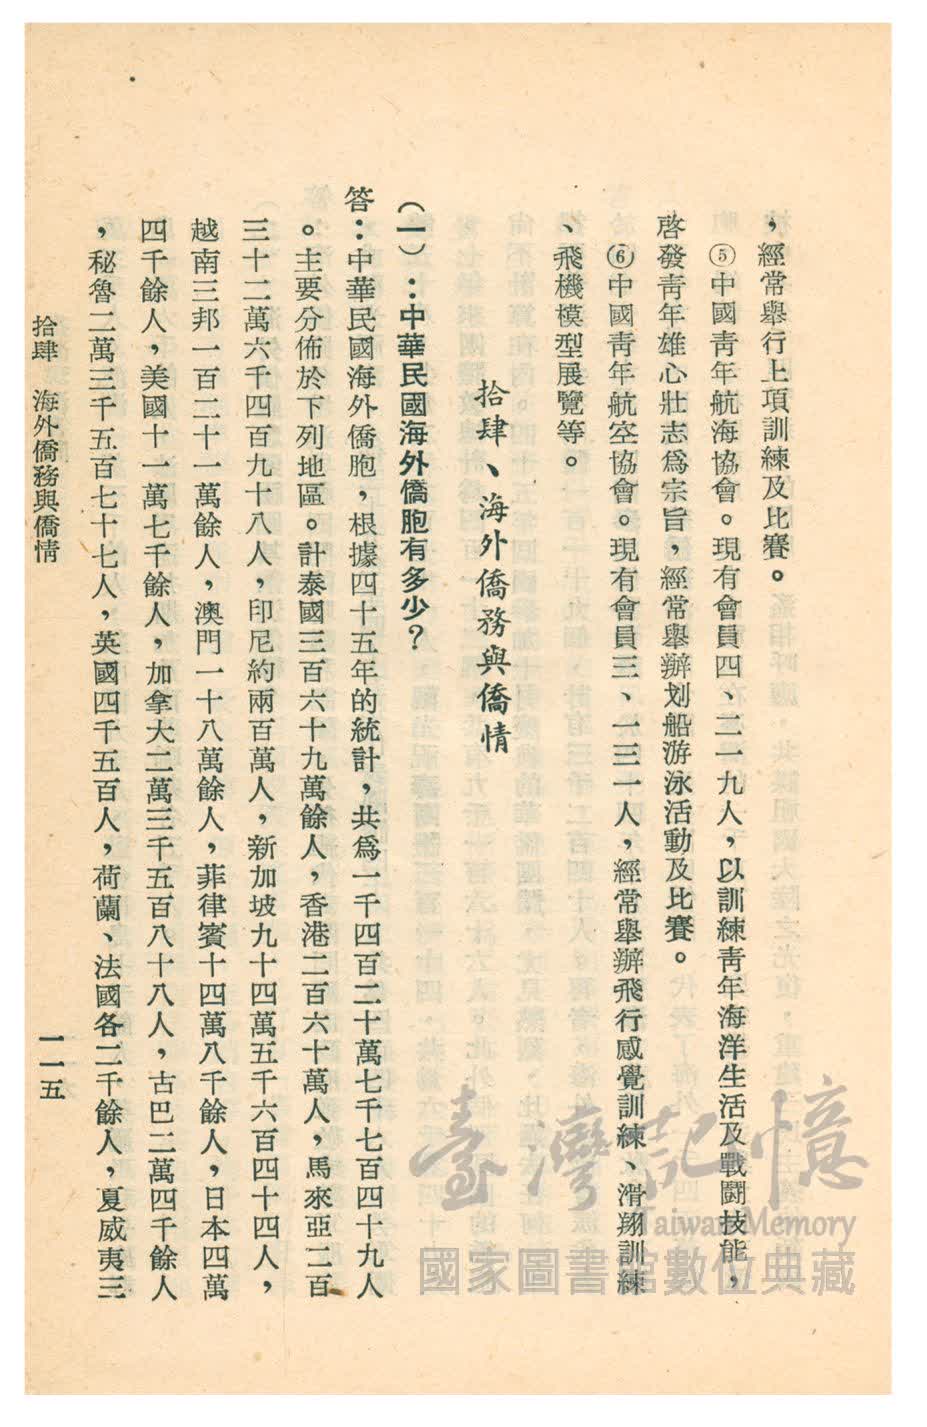 ，經常舉行上項訓練及比賽。
⑤中國靑年航海協會。現有會員四、二一九人，以訓練靑年海洋生活及戰鬪技能，
啓發靑年雄心壯志爲宗旨，經常舉辦划船游泳活動及比賽。
⑥中國靑年航空協會。現有會員三、一三一人，經常舉辦飛行感覺訓練、滑翔訓練
、飛機模型展覽等。
拾肆、海外僑務與僑情
（一）：中華民國海外僑胞有多少？
答：中華民國海外僑胞，根據四十五年的統計，共爲一千四百二十萬七千七百四十九人
。主要分佈於下列地區。計泰國三百六十九萬餘人，香港二百六十萬人，馬來亞二百
三十二萬六千四百九十八人，印尼約兩百萬人，新加坡九十四萬五千六百四十四人，
越南三邦一百二十一萬餘人，澳門一十八萬餘人，菲律賓十四萬八千餘人，日本四萬
四千餘人，美國十一萬七千餘人，加拿大二萬三千五百八十八人，古巴二萬四千餘人
，秘魯二萬三千五百七十七人，英國四千五百人，荷蘭、法國各二千餘人，夏威夷三
拾肆　海外僑務與僑情
一一五
臺灣記憶
Taiwan Memory
國家圖書館數位典藏